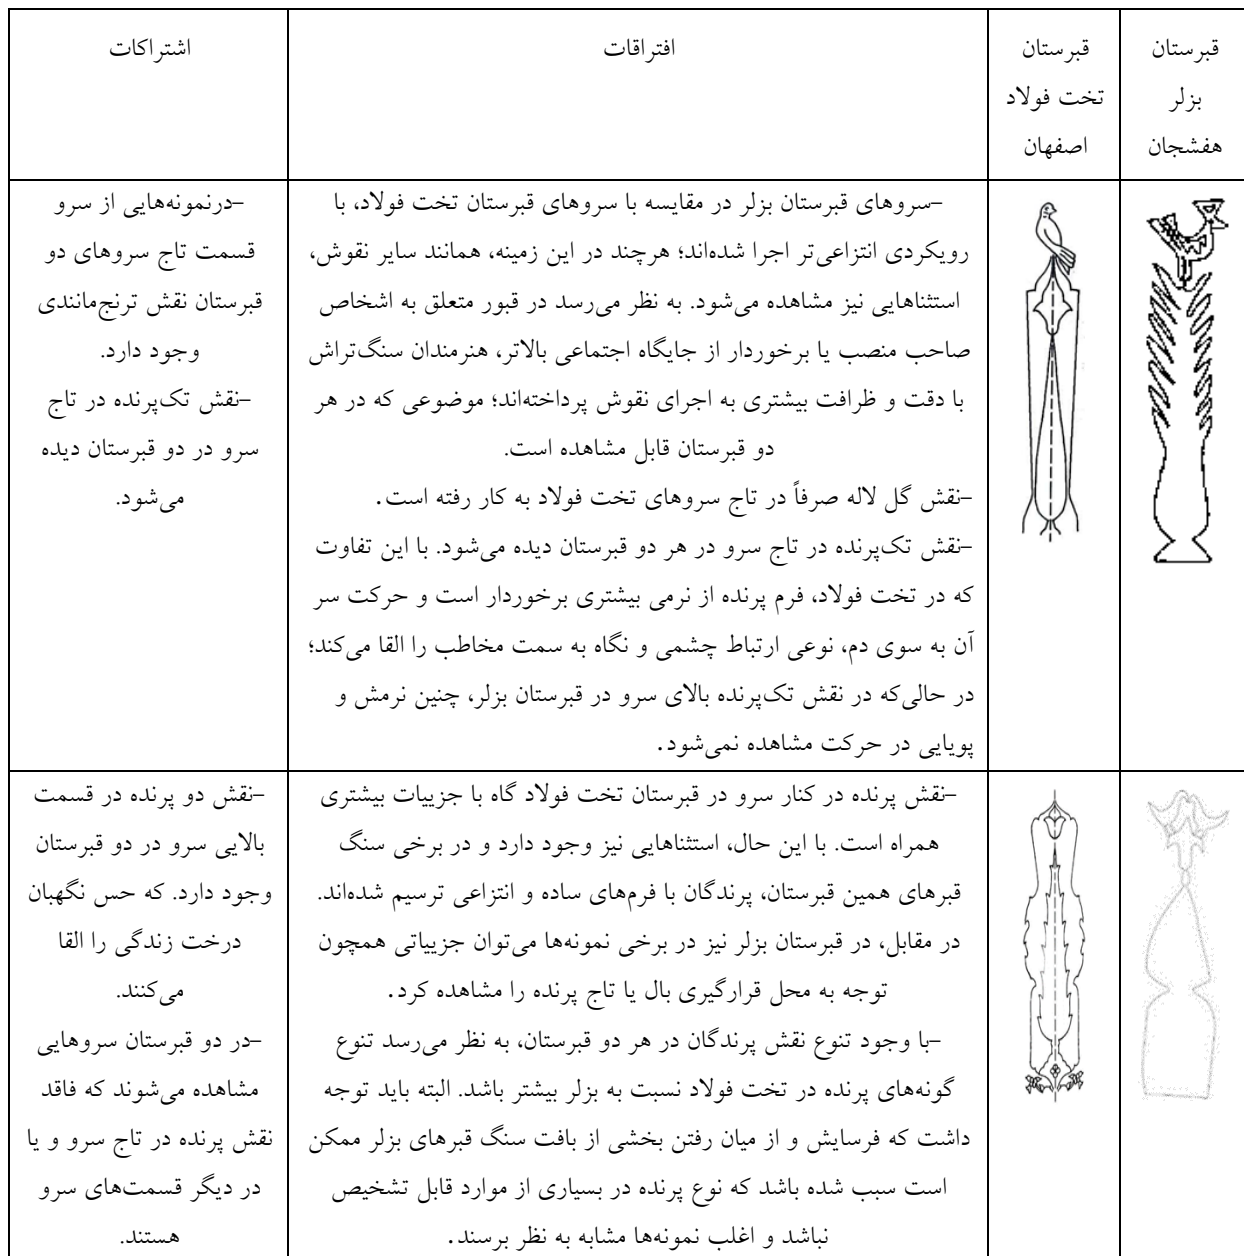 قبرستان
بزلر
هفشجان
قبرستان
تخت فولاد
اصفهان
افتراقات
اشتراکات
-سروهای قبرستان بزلر در مقایسه با سروهای قبرستان تخت فولاد، با
رویکردی انتزاعی‌تر اجرا شده‌اند؛ هرچند در این زمینه، همانند سایر نقوش،
استثناهایی نیز مشاهده می‌شود. به نظر می‌رسد در قبور متعلق به اشخاص
صاحب منصب یا برخوردار از جایگاه اجتماعی بالاتر، هنرمندان سنگ‌تراش
با دقت و ظرافت بیشتری به اجرای نقوش پرداخته‌اند؛ موضوعی که در هر
دو قبرستان قابل مشاهده است.
-نقش گل لاله صرفاً در تاج سروهای تخت فولاد به کار رفته است.
-نقش تک‌پرنده در تاج سرو در هر دو قبرستان دیده می‌شود. با این تفاوت
که در تخت فولاد، فرم پرنده از نرمی بیشتری برخوردار است و حرکت سر
آن به سوی دم، نوعی ارتباط چشمی و نگاه به سمت مخاطب را القا می‌کند؛
در حالی‌که در نقش تک‌پرنده بالای سرو در قبرستان بزلر، چنین نرمش و
پویایی در حرکت مشاهده نمی‌شود.
-درنمونه‌هایی از سرو
قسمت تاج سروهای دو
قبرستان نقش ترنج‌مانندی
وجود دارد.
-نقش تک‌پرنده در تاج
سرو در دو قبرستان دیده
می‌شود.
-نقش پرنده در کنار سرو در قبرستان تخت فولاد گاه با جزییات بیشتری
همراه است. با این حال، استثناهایی نیز وجود دارد و در برخی سنگ
قبرهای همین قبرستان، پرندگان با فرم‌های ساده و انتزاعی ترسیم شده‌اند.
در مقابل، در قبرستان بزلر نیز در برخی نمونه‌ها می‌توان جزییاتی همچون
توجه به محل قرارگیری بال یا تاج پرنده را مشاهده کرد.
-با وجود تنوع نقش پرندگان در هر دو قبرستان، به نظر می‌رسد تنوع
گونه‌های پرنده در تخت فولاد نسبت به بزلر بیشتر باشد. البته باید توجه
داشت که فرسایش و از میان رفتن بخشی از بافت سنگ قبرهای بزلر ممکن
است سبب شده باشد که نوع پرنده در بسیاری از موارد قابل تشخیص
نباشد و اغلب نمونه‌ها مشابه به نظر برسند.
-نقش دو پرنده در قسمت
بالایی سرو در دو قبرستان
وجود دارد. که حس نگهبان
درخت زندگی را القا
می‌کنند.
-در دو قبرستان سروهایی
مشاهده می‌شوند که فاقد
نقش پرنده در تاج سرو و یا
در دیگر قسمت‌های سرو
هستند.